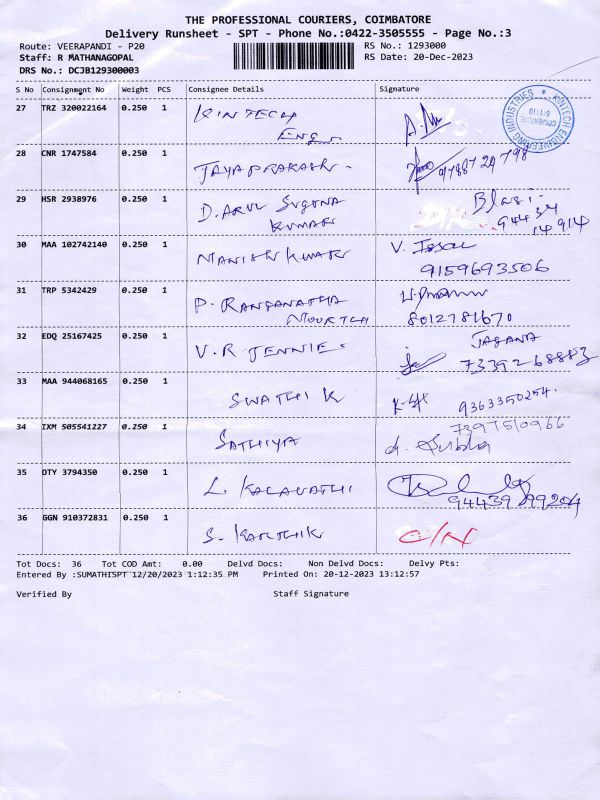 THE PROFESSIONAL COURIERS, COIMBATORE
Delivery Runsheet - SPT - Phone No.:0422-3505555 - Page No.:3
Route: VEERAPANDI - P20 RS No.: 1293000
Staff: R MATHANAGOPAL RS Date: 20-Dec-2023
DRS No.: DCJB129300003
S No Consignment No Weight PCS Consignee Details Signature
27 TRZ 320022164 0.250 1 KINTECH
ENGG
KINTECH ENGINEERING INDUSTRIES
COIMBATORE
28 CNR 1747584 0.250 1 JAYAPRAKASH. 9788729798
29 HSR 2938976 0.250 1 D. ARUL SUGUNA
KUMAR
94434
14914
30 MAA 102742140 0.250 1 MANISH KUMAR V.
9159693506
31 TRP 5342429 0.250 1 P. RANGANATHA
MOORTHI 8012781670
32 EDQ 25167425 0.250 1 V. R JENNIE. JAGANA
7339268883
33 MAA 944068165 0.250 1 SWATHI K 9363350254.
34 IXM 505541227 0.250 1 SATHIYA 7397510966
35 OTY 3794350 0.250 1 L. KALAVATHI
9443999204
36 GGN 910372831 0.250 1 S. KARTHIK C/N
Tot Docs: 36 Tot COD Amt: 0.00 Delvd Docs: Non Delvd Docs: Delvy Pts:
Entered By :SUMATHISPT 12/20/2023 1:12:35 PM Printed On: 20-12-2023 13:12:57
Verified By Staff Signature